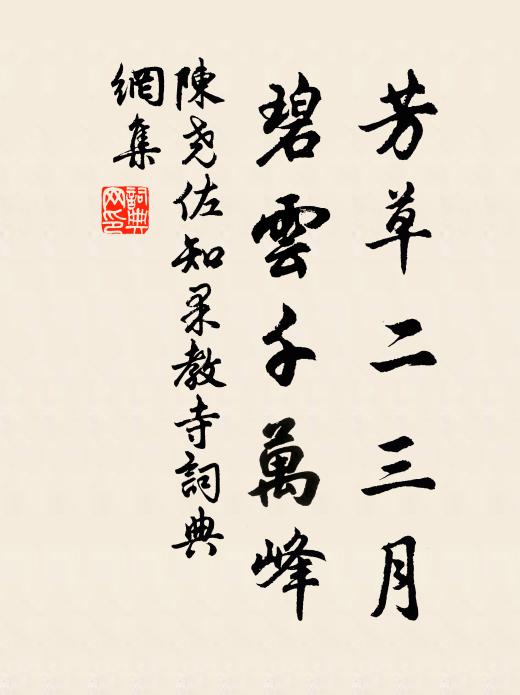 芳草二三月
碧雲千萬峰
陳堯佐知果教寺詞典
網集
詞典
网印